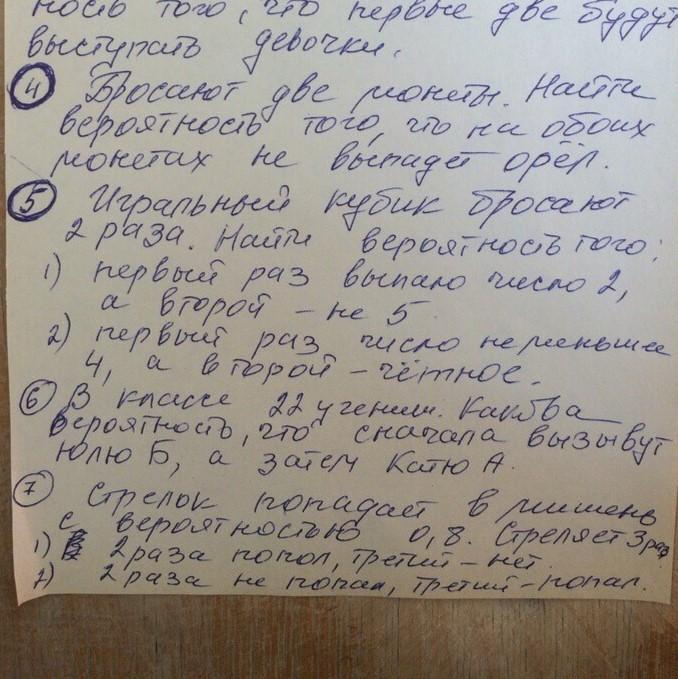 ность того, что первые две будут
выступать девочки.
4 Бросают две монеты. Найти
вероятность того, что на обоих
монетах не выпадет орёл.
5 Игральный кубик бросают
2 раза. Найти вероятность того:
1) первый раз выпало число 2,
а второй - не 5.
2) первый раз число не меньше
4, а второй - чётное.
6 В классе 22 ученик. Какова
вероятность, что сначала вызывут
Юлю Б, а затем Катю А.
7 Стрелок попадает в мишень
с вероятностью 0,8. Стреляет 3 раз
1) 2 раза попал, третий - нет.
2) 2 раза не попал, третий - попал.